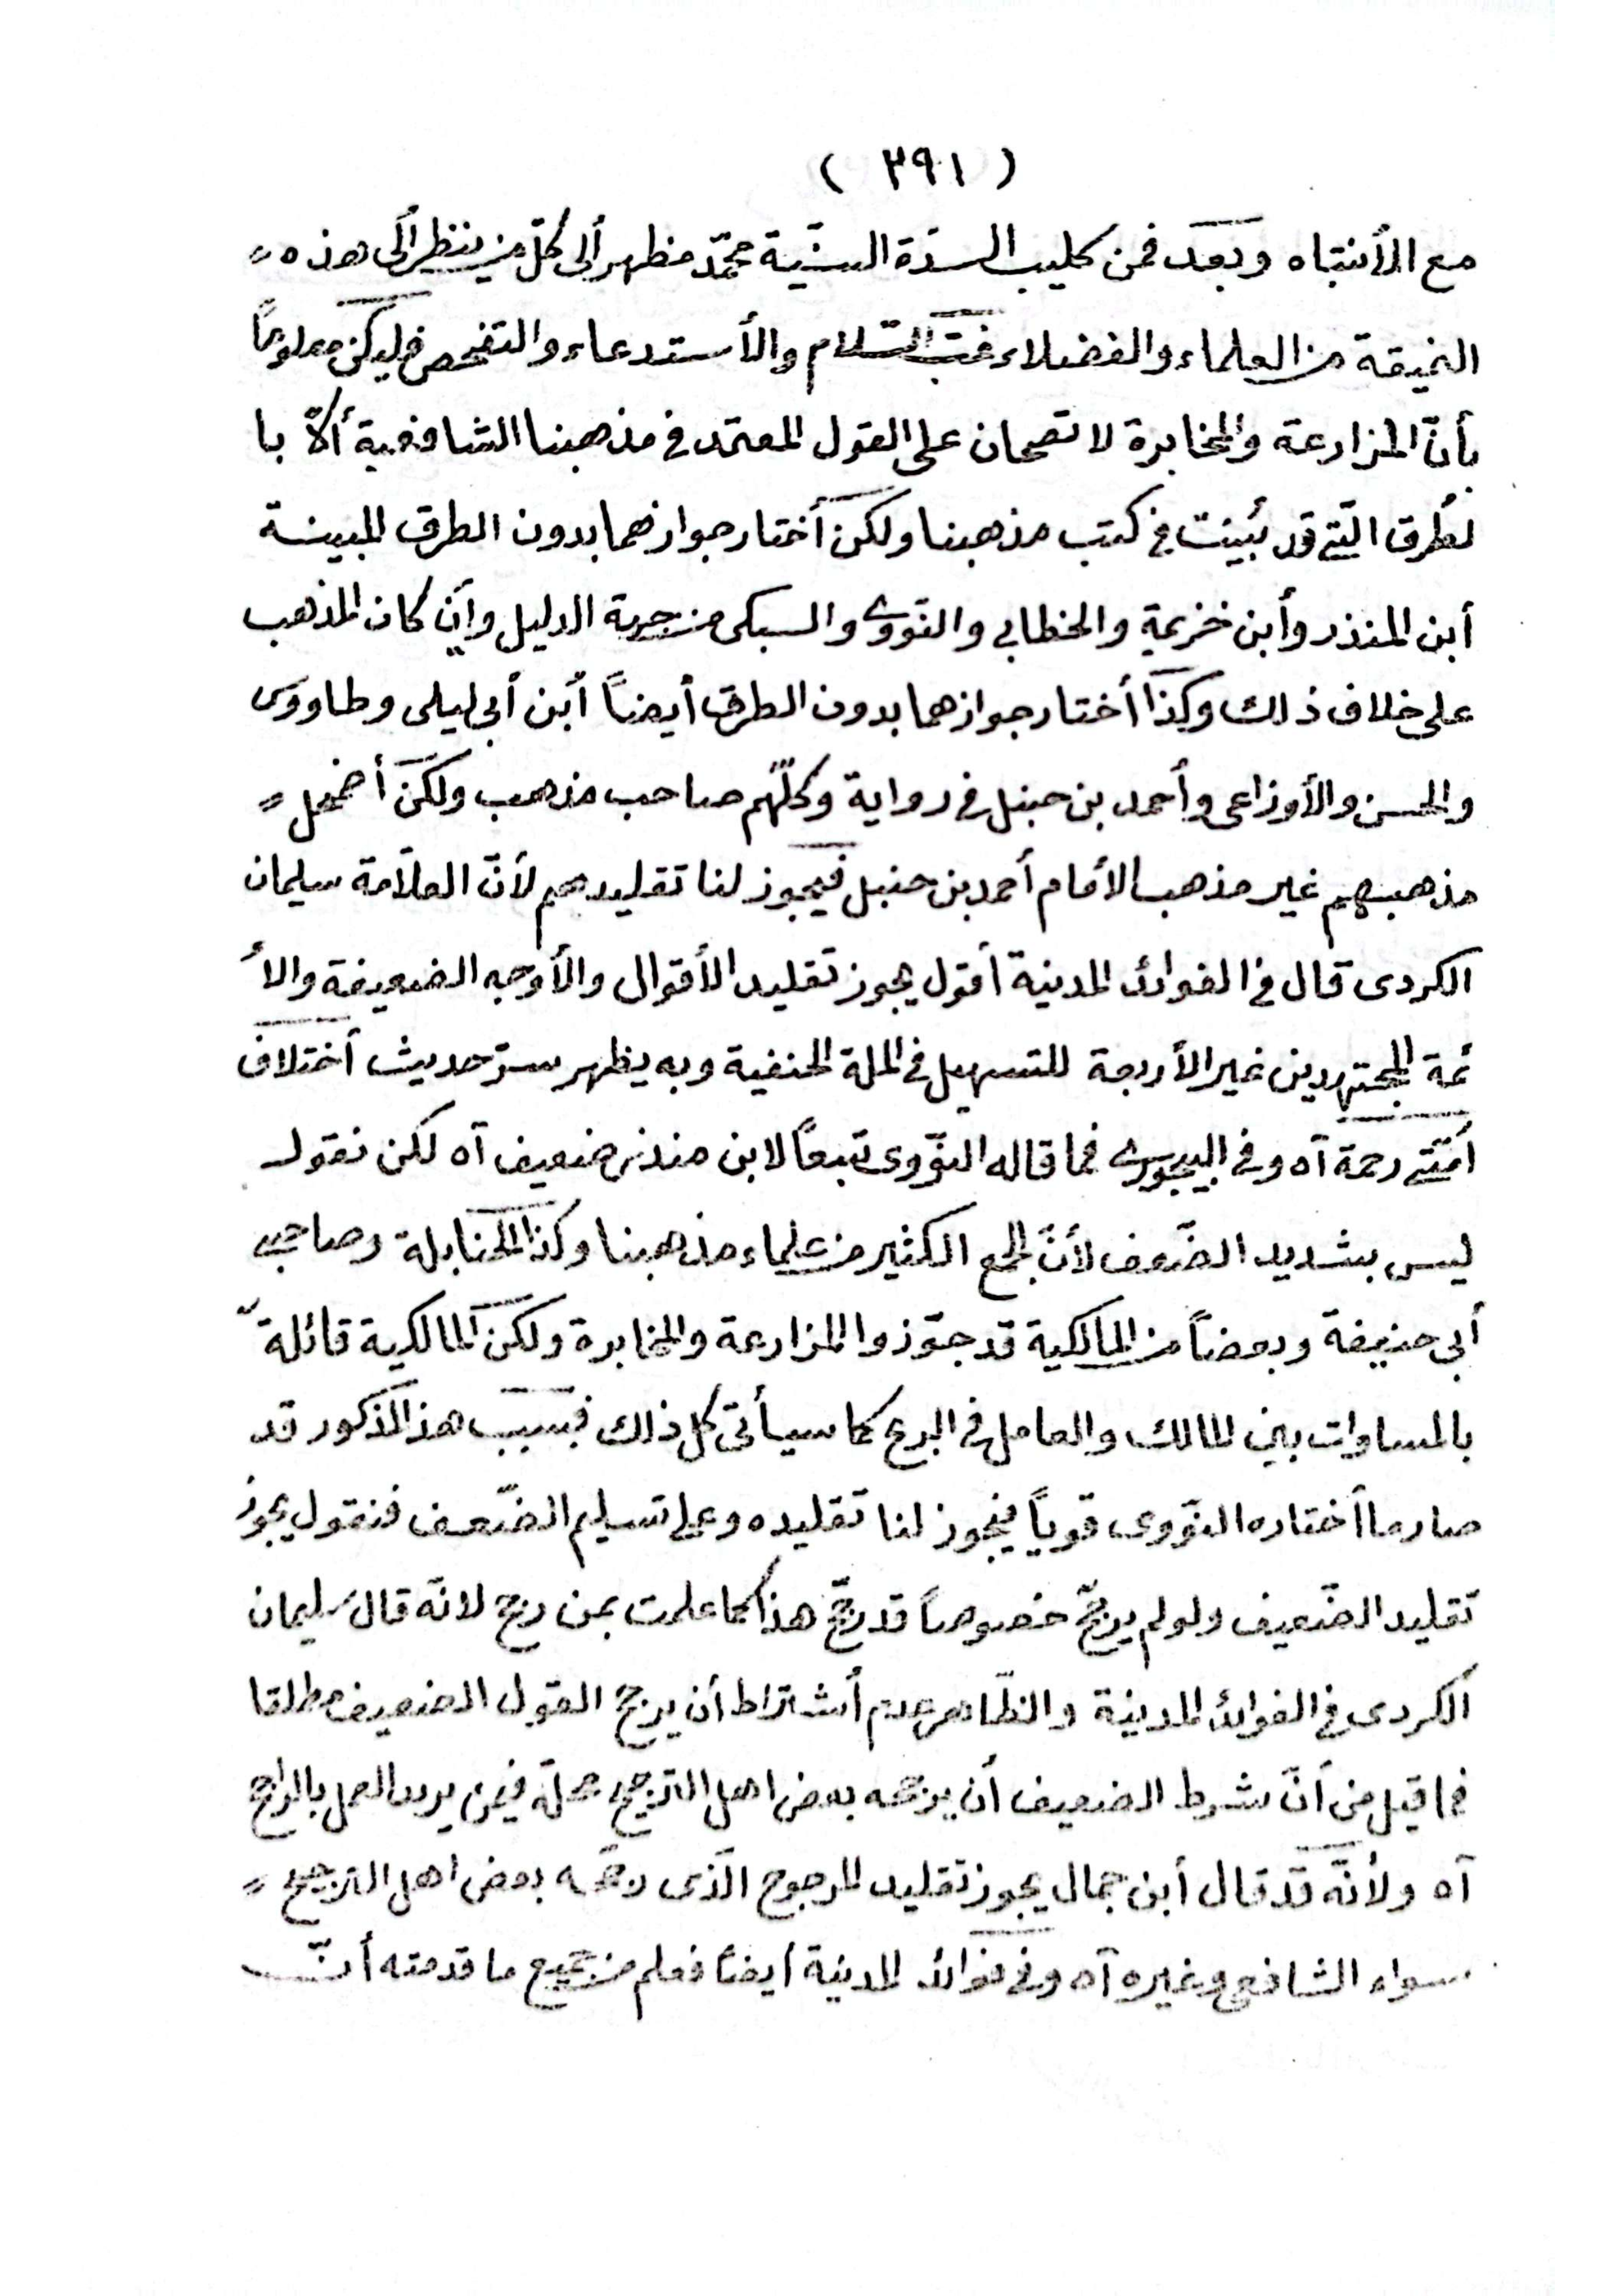 ( ٢٩١ )
مع الأنتباه وبعد فمن كليب السدّة السنّية محمّد مظهر ألى كلّ من ينظر ألى هذه
النميقة من العلماء والفضلاء غبّ السّلام والأستدعاء والتفحص فليكن معلوماً
بأنّ المزارعة والمخابرة لا تصحان على القول المعتمد فى مذهبنا الشافعية ألاّ با
لطُرق الّتى قد بُيّنت فى كتب مذهبنا ولكن أختار جوازهما بدون الطرق المبينة
أبن المنذر وأبن خزيمة والخطابى والنّووى والسبكى من جهة الدليل وأن كان المذهب
على خلاف ذلك وكذا أختار جوازهما بدون الطرق أيضاً أبن أبى ليلى وطاووس
والحسن والأوزاعى وأحمد بن حنبل فى رواية وكلّهم صاحب مذهب ولكن أضمحل
مذهبهم غير مذهب الأمام أحمد بن حنبل فيجوز لنا تقليدهم لأنّ العلاّمة سليمان
الكردى قال فى الفوائد المدنية أقول يجوز تقليد الأقوال والأوجه الضعيفة والأ
ئمة المجتهدين غير الأربعة للتسهيل فى الملة الحنفية وبه يظهر سرّ حديث أختلاف
أمّتى رحمة آه وفى البيجورى فما قاله النّووى تبعاً لابن منذر ضعيف آه لكن نقول
ليس بشديد الضّعف لأنّ الجمع الكثير من علماء مذهبنا وكذا الحنابلة وصاحبى
أبى حنيفة وبعضاً من المالكية قد جوّزوا المزارعة والمخابرة ولكن المالكية قائلة
بالمساوات بين المالك والعامل فى البرع كما سيأتى كل ذلك فبسبب هذ المذكور قد
صار ما أختاره النّووى قوياً فيجوز لنا تقليده وعلى تسليم الضّعف فنقول يجوز
تقليد الضّعيف ولو لم يرجّح خصوصاً قد رجّح هذا كما علمت بمن رجح لانّه قال سليمان
الكردى فى الفوائد المدنية والظّاهر عدم أشتراط أن يرجح القول الضعيف مطلقا
فما قيل من أنّ شرط الضعيف أن يرجحه بعض اهل الترجيح محلّه فيمن يريد العمل بالراجح
آه ولأنّه قد قال أبن جمال يجوز تقليد المرجوح الّذى رجّحه بعض اهل الترجيح
سواء الشافعى وغيره آه وفى فوائد المدنية أيضاً فعلم من جميع ما قدمته أنّ